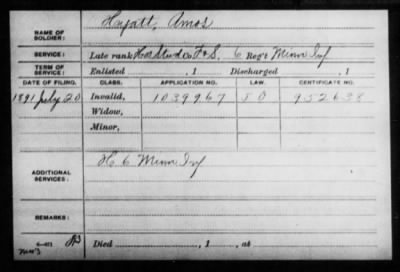 NAME OF SOLDIER: Hyatt, Amos
SERVICE: Late rank Hos Stud Co. F & S, 6 Reg't Minn Inf
TERM OF SERVICE: Enlisted , 1 Discharged , 1
DATE OF FILING. CLASS. APPLICATION NO. LAW. CERTIFICATE NO.
1891 July 20 Invalid, 1039967 J O 952638
Widow,
Minor,
ADDITIONAL SERVICES: H 6 Minn Inf
REMARKS:
Died , 1 , at